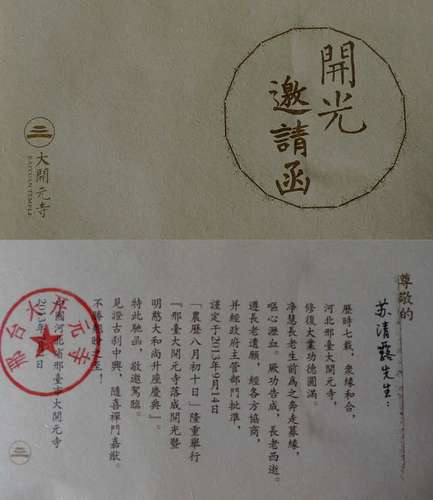 開光
邀請函
大開元寺
KAIYUAN TEMPLE
尊敬的
苏清露先生：
歷時七載，衆緣和合，
河北邢臺大開元寺，
修復大業功德圓滿。
净慧長老生前爲之奔走募緣，
嘔心瀝血。厥功告成，長老西逝。
遵長老遺願，經各方協商，
并經政府主管部門批準，
謹定于2013年9月14日
「農歷八月初十日」隆重舉行
『邢臺大開元寺落成開光暨
明憨大和尚升座慶典』。
特此馳函，敬邀駕臨。
見證古刹中興，隨喜禪門嘉猷。
不勝翹盼之至！
中國河北省邢臺市大開元寺